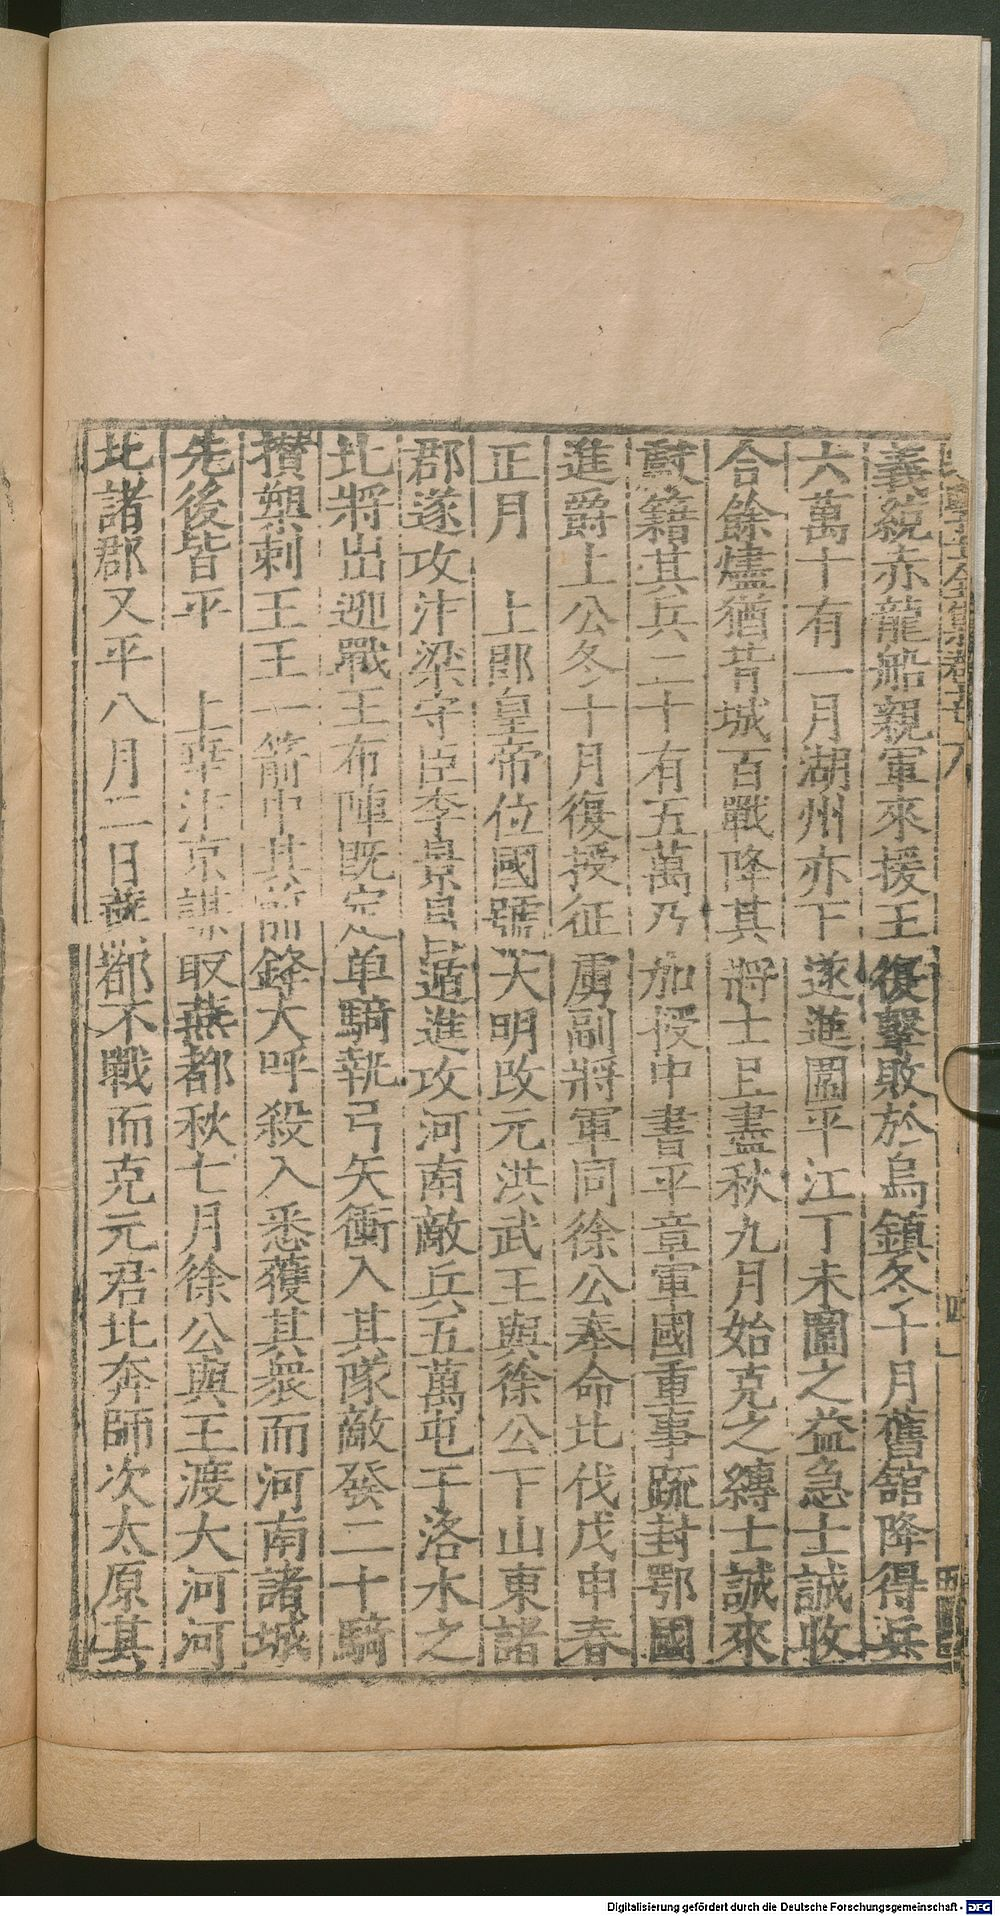 義統赤龍船親軍來援王復擊敗於烏鎮冬十月舊舘降得兵
六萬十有一月湖州亦下遂進圍平江丁未圍之益急士誠收
合餘燼猶背城百戰降其將士且盡秋九月始克之縛士誠來
獻籍其兵二十有五萬乃加授中書平章軍國重事䟽封鄂國
進爵上公冬十月復授征虜副將軍同徐公奉命北伐戊申春
正月　上即皇帝位國號大明改元洪武王與徐公下山東諸
郡遂攻汴梁守臣李景昌遁進攻河南敵兵五萬屯于洛水之
北將出迎戰王布陣既定单騎執弓矢衝入其隊敵發二十騎
攅槊刺王王一箭中其前鋒大呼殺入悉獲其衆而河南諸城
先後皆平　上幸汴京謀取燕都秋七月徐公與王渡大河河
北諸郡又平八月二日燕都不戰而克元君北奔師次太原其
Digitalisierung gefördert durch die Deutsche Forschungsgemeinschaft - DFG